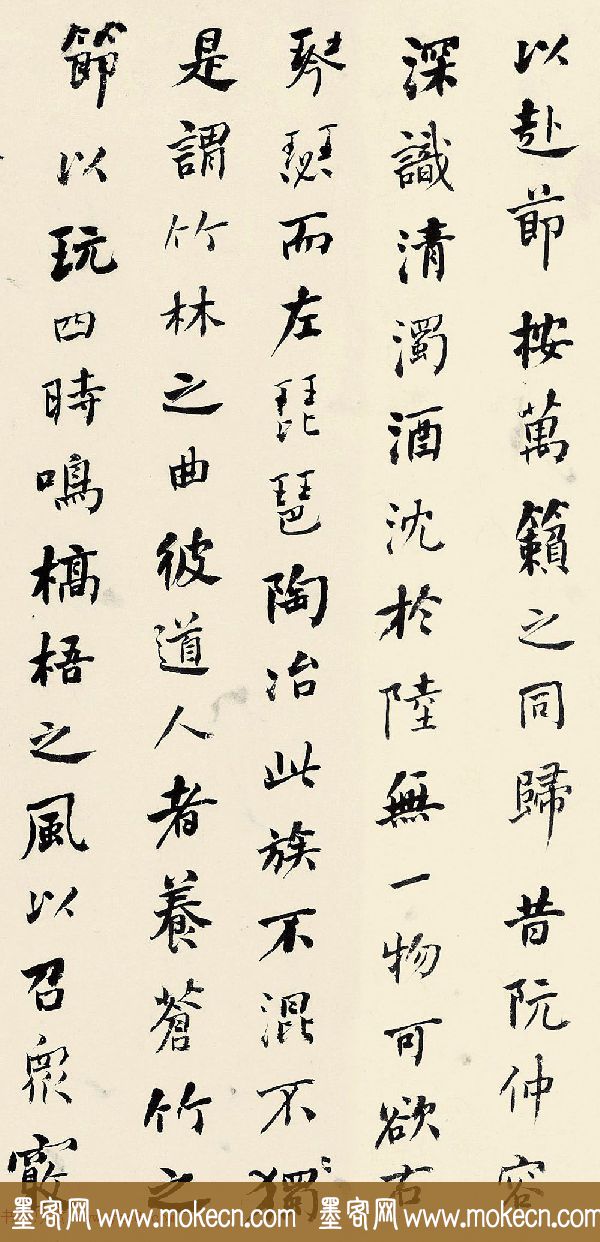 以赴節按萬籟之同歸昔阮仲容
深識清濁酒沈於陸無一物可欲右
琴瑟而左琵琶陶冶此族不混不獨
是謂竹林之曲彼道人者養蒼竹之
節以玩四時鳴槁梧之風以召衆竅
墨客网 www.mokecn.com 墨客网 www.mokecn.com